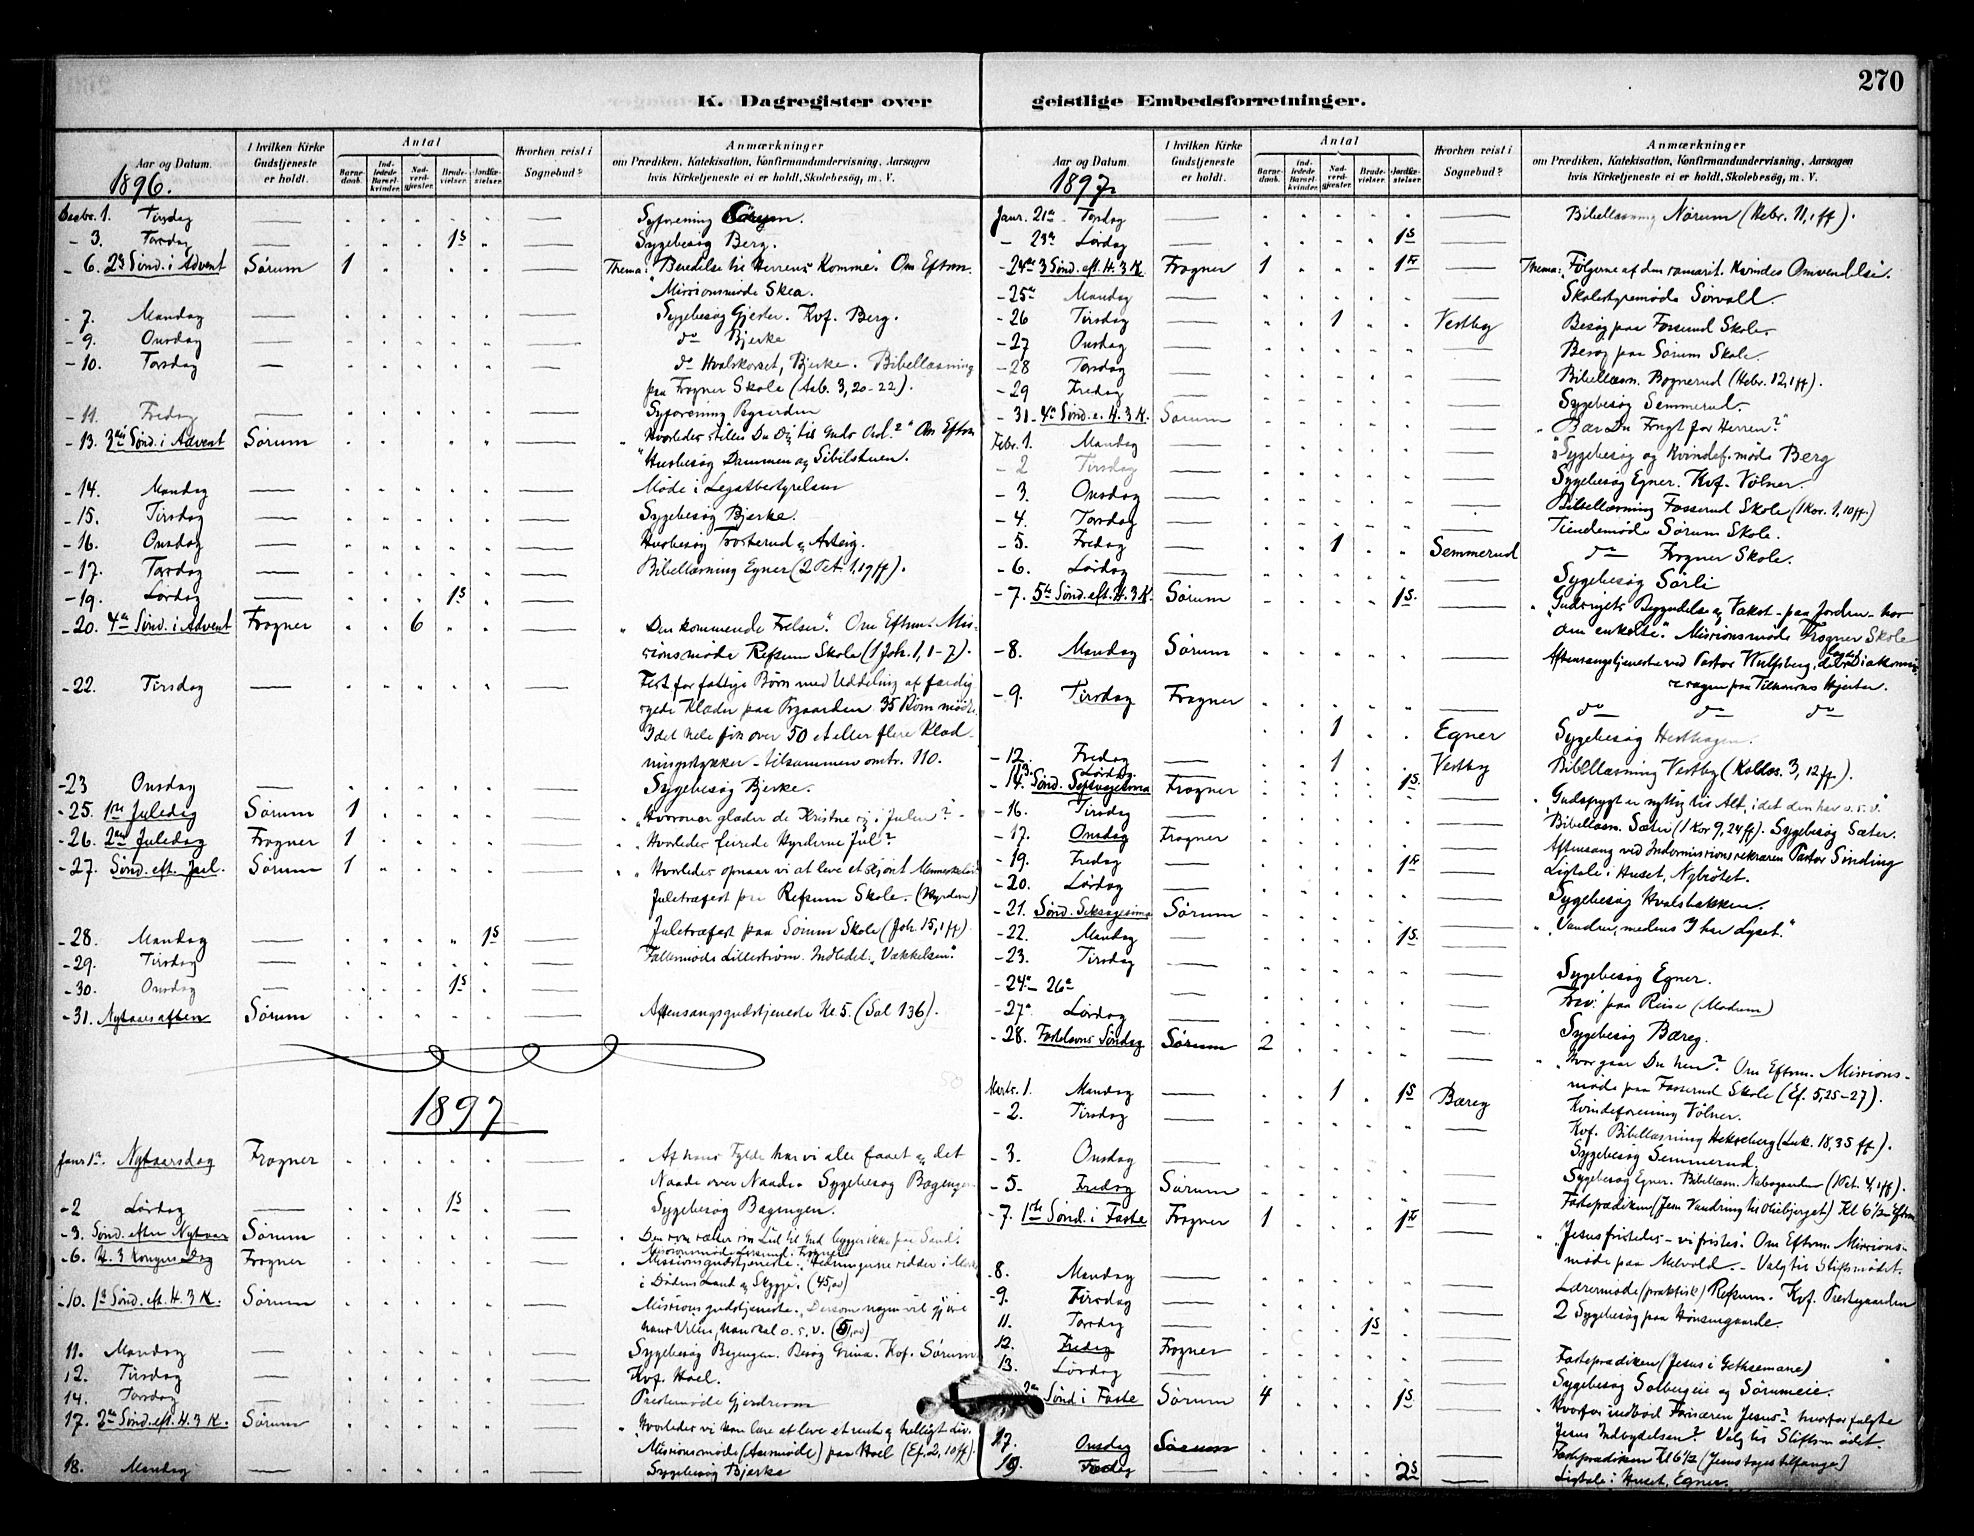 270
K. Dagregister over geistlige Embedsforretninger.
Aar og Datum.
I hvilken Kirke Gudstjeneste er holdt.
Antal
Barnedaab.
Indledede Barselkvinder.
Nadverdgjester.
Brudevielser.
Jordfæstelser.
Hvorhen reist i Sognebud?
Anmærkninger
om Prædiken, Katekisation, Konfirmandundervisning, Aarsagen
hvis Kirketjeneste ei er holdt, Skolebesøg, m. V.
1896.
Decbr. 1. Tirsdag Syforening
- 3. Torsdag 1 S Sygebesøg Berg.
- 6. 2den Sønd. i Advent Sørum 1 Thema: "Beredelse til Herrens Komme". Om Efterm.
Missionsmøde Skea.
- 7. Mandag Sygebesøg Gjester. Kvf. Berg.
- 9. Onsdag do Bjerke
- 10. Torsdag do Hvalskorset, Bjerke. Bibellæsning
paa Frogner Skole (Aab. 3, 20-22).
- 11. Fredag Syforening
- 13. 3die Sønd. i Advent Sørum "Hvorledes stiller Du Dig til Guds Ord?" Om Efterm
Husbesøg Dammen og Sibilstuen.
- 14. Mandag Møde i Legatbestyrelsen
- 15. Tirsdag Sygebesøg Bjerke.
- 16. Onsdag Husbesøg
- 17. Torsdag Bibellæsning Egner (2 Pet. 1,19 ff).
- 19. Lørdag 1 S
- 20. 4de Sønd. i Advent Frogner 6 "Den kommende Frelser". Om Efterm. Mis-
sionsmøde Refsum Skole (1 Joh. 1, 1-7).
- 22. Tirsdag Fest for fattige Børn med Uddeling af færdig
syede Klæder paa 35 Børn mødte.
I det hele fik over 50 et eller flere Klæd-
ningsstykker - tilsammen omtr. 110.
- 23 Onsdag Sygebesøg Bjerke.
- 25. 1ste Juledag Sørum 1 "Hvorover glæder de Kristne sig i Julen?"
- 26. 2den Juledag Frogner 1 "Hvorledes feirede Hyrderne Jul?"
- 27. Sønd. eft. Jul. Sørum 1 "Hvorledes opnaar vi at leve et skjønt Menneskeliv"
Juletræfest paa Refsum Skole. (Hyrdern)
- 28. Mandag 1 S Juletræfest paa Sørum Skole (Joh. 15, 1 ff)
- 29. Tirsdag Fællesmøde Lillestrøm. Indledet: "Vækkelsen".
- 30. Onsdag 1 S
- 31. Nytaarsaften Sørum Aftensangsgudstjeneste Kl. 5. (Sal 136).
1897
Janr. 1ste Nytaarsdag Frogner Af hans Fylde har vi alle faaet og det
Naade over Naade. Sygebesøg
- 2 Lørdag 1 S Sygebesøg
- 3. Sønd. efter Nytaar Sørum "Den som sætter sin Lid til Gud bygger ikke paa Sand".
- 6. H. 3 Kongers Dag Frogner Missionsgudstjeneste.
i Dødens Land og Skygge". (45,00)
- 10. 1ste Sønd. eft. H. 3 K. Sørum Missionsgudstjeneste. "Dersom nogen vil gjøre
hans Villie, han skal o. s. v.
11. Mandag Sygebesøg Besøg Kvf. Sørum
12. Tirsdag Kvf. Hoel.
14. Torsdag Prestemøde Gjerdrum
17. 2den Sønd. eft. H. 3 K. Sørum "Hvorledes vi kan lære at leve et rent og helligt Liv."
Missionsmøde (Aarsmøde) paa Hoel (Ef. 2, 10 ff).
18. Mandag Sygebesøg Bjerke
Aar og Datum.
I hvilken Kirke Gudstjeneste er holdt.
Antal
Barnedaab.
Indledede Barselkvinder.
Nadverdgjester.
Brudevielser.
Jordfæstelser.
Hvorhen reist i Sognebud?
Anmærkninger
om Prædiken, Katekisation, Konfirmandundervisning, Aarsagen
hvis Kirketjeneste ei er holdt, Skolebesøg, m. V.
1897.
Janr. 21de Torsdag Bibellæsning Nørum (Hebr. 11, 1 ff).
- 23de Lørdag 1 S
- 24de 3 Sønd. eft. H. 3 K. Frogner 1 1 Fr Thema: "Følgerne af den samarit. Kvindes Omvendelse".
- 25de Mandag Skolestyremøde Sørvald.
- 26 Tirsdag 1 Vestby Besøg paa Fosserud Skole.
- 27 Onsdag Besøg paa Sørum Skole.
- 28 Torsdag Bibellæsn. Bognerud (Hebr. 12, 1 ff).
- 29 Fredag Sygebesøg Semmerud.
- 31. 4de Sønd. e. H. 3 K. Sørum "Bær Du Frugt for Herren?"
Febr. 1. Mandag Sygebesøg og Kvindef.møde Berg
- 2 Tirsdag Sygebesøg Egner. Kvf. Vølner.
- 3. Onsdag Bibellæsning Fosserud Skole (1 Kor. 1, 10 ff.)
- 4. Torsdag Tiendemøde Sørum Skole.
- 5. Fredag 1 Semmerud do Frogner Skole.
- 6. Lørdag Sygebesøg Sørli
- 7. 5te Sønd. eft. H. 3 K. Sørum 1 S. "Gudsrigets Begyndelse og Vækst - paa Jorden - hos
den enkelte". Missionsmøde Frogner Skole
- 8. Mandag Sørum Aftensangstjeneste ved Pastor Wulfsberg,
- 9. Tirsdag Frogner do do do
- 12. Fredag 1 Egner Sygebesøg Hesthagen.
13. Lørdag 1 Vestby Bibellæsning Vestby (Koloss. 3, 12 ff).
- 14. Sønd. Septuagesima Frogner 1 S. "Gudsfrygt er nyttig til Alt, idet den har o. s. v."
- 16. Tirsdag Bibellæsn. Sæter (1 Kor 9, 24 ff). Sygebesøg Sæter.
- 17. Onsdag Frogner Aftensang ved Indremissionssekretæren Pastor Sinding
- 19. Fredag 1 Fr Ligtale i Huset,
- 20. Lørdag Sygebesøg Hvalsbakken.
- 21. Sønd. Seksagesima Sørum "Vandrer, medens I har Lyset."
- 22. Mandag 1 S.
- 23. Tirsdag Sygebesøg Egner.
- 24de - 26de Frav. paa Reise (Modum)
- 27de Lørdag Sygebesøg Bæreg.
- 28. Fastelavns Søndag Sørum 2 "Hvor gaar Du hen?" Om Efterm. Missions-
møde paa Fosserud Skole (Ef. 5, 25-27).
Marts. 1. Mandag 1 1 S Bæreg Kvindeforening Vølner.
- 2. Tirsdag Kvf. Bibellæsning Hekseberg (Luk. 18, 35 ff).
- 3. Onsdag Sygebesøg Semmerud.
Sygebesøg Egner. Bibellæsn.
- 5. Fredag Sørum Fasteprædiken (Jesu Vandring til Oliebjerget) Kl 6½ Efterm
- 7. 1ste Sønd. i Faste Frogner 1 1 Fr "Jesus fristedes - vi fristes". Om Efterm. Missions-
møde paa Melvold. - Valg til Stiftsmødet.
8. Mandag Lærermøde (praktisk) Refsum. Kvf. Prestegaarden
- 9. Tirsdag 2 Sygebesøg paa
11. Torsdag 1 S
12. Fredag Frogner Fasteprædiken (Jesus i Gethsemane)
13. Lørdag Sygebesøg Solbergeie og Sørumeie.
Sønd i Faste Sørum 4 1 S "Hvorfor indbød Farisæren Jesus? hvorfor fulgte
Jesus Indbydelsen?" Valg til Stiftsmødet.
17. Onsdag Sørum Fasteprædiken Kl 6½ (Jesus tages tilfange)
19. Fredag 2 S Ligtale i Huset, Egner.